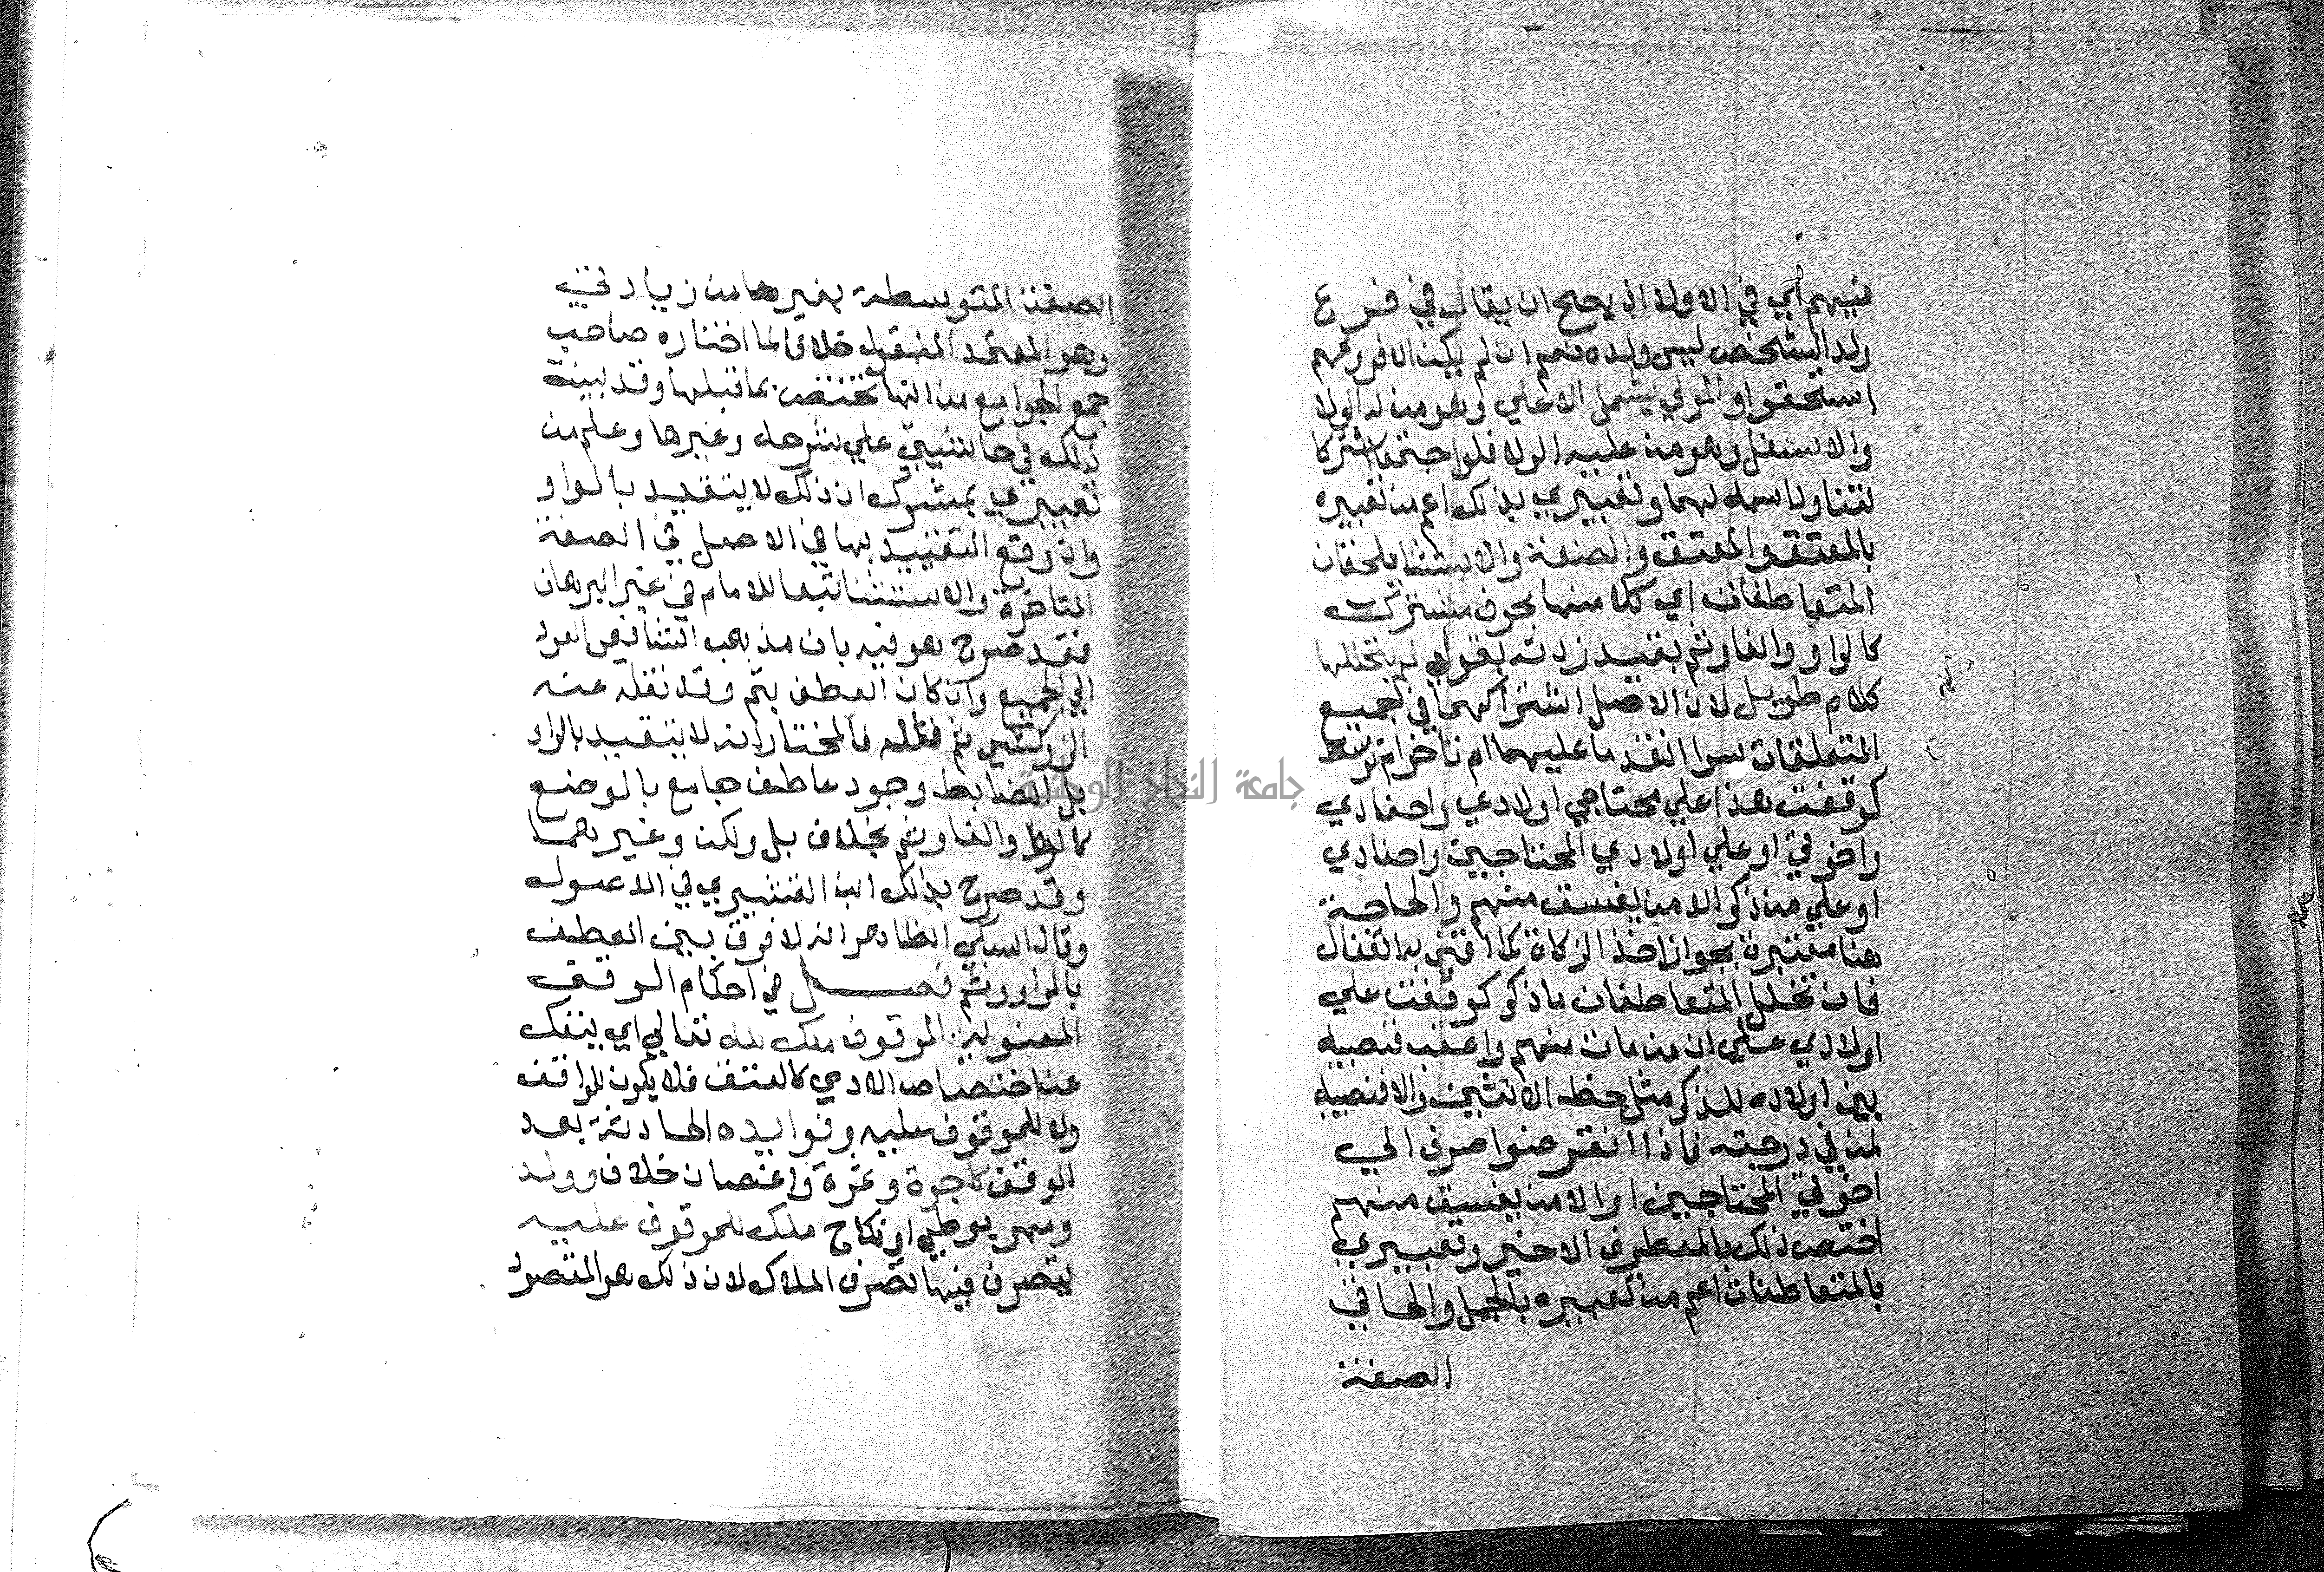 فيهم أي في الاولاد اذ يصح ان يقال في فرع
ولد الشخص ليس ولده نعم ان لم يكن الا فروعهم
استحقوا والمولي يشمل الاعلي وهو من له الولا
والاسفل وهو من عليه الولا فلو اجتمعا اشتركا
لتناول اسمه لهما وتعبيري بذلك اعم من تعبيره
بالمعتق والمعتق والصفة والاستثنا يلحقان
المتعاطفات اي كلا منها بحرف مشترك
كالواو والفا وثم بقيد زدته بقولي لم يتخللها
كلام طويل لان الاصل اشتراكهما في جميع
المتعلقات سوا اتقدما عليهما ام تاخرا ام توسطا
كوقفت هذا علي محتاجي اولادي واحفادي
واخوتي او علي اولادي المحتاجين واحفادي
او علي من ذكر الا من يفسق منهم والحاجة
هنا معتبرة بجواز اخذ الزكاة كما افتي به القفال
فان تخلل المتعاطفات ما ذكر كوقفت علي
اولادي علي ان من مات منهم واعقب فنصيبه
بين اولاده للذكر مثل حظ الانثيين والا فنصيبه
لمن في درجته فاذا انقرضوا صرف الي
اخوتي المحتاجين او الا من يفسق منهم
اختص ذلك بالمعطوف الاخير وتعبيري
بالمتعاطفات اعم من تعبيره بالجمل والحاقي
الصفة
الصفة المتوسطة بغيرها من زيادتي
وهو المعتمد المنقول خلافا لما اختاره صاحب
جمع الجوامع من انها تختص بما قبلها وقد بينت
ذلك في حاشيتي علي شرحه وغيرها وعلم من
تعبيري بمشرك ان ذلك لا يتقيد بالواو
وان وقع التقييد بها في الاصل في الصفة
المتاخرة والاستثنا تبعا للامام في غير البرهان
فقد صرح هو فيه بان مذهب الشافعي العود
الي الجميع وان كان العطف بثم وقد نقله عنه
الزركشي ثم قال فالمختار انه لا يتقيد بالواو
بل الضابط وجود عاطف جامع بالوضع
كالواو والفا وثم بخلاف بل ولكن وغيرهما
وقد صرح بذلك ابن القشيري في الاصول
وقال السبكي الظاهر انه لا فرق بين العطف
بالواو وثم فصل في احكام الوقف
المعنوية الموقوف ملك لله تعالي اي ينفك
عن اختصاص الادمي كالعتق فلا يكون للواقف
ولا للموقوف عليه وفوايده الحادثة بعد
الوقف كاجرة وثمرة واغصان خلاف وولد
ومهر بوطي او نكاح ملك للموقوف عليه
يتصرف فيها تصرف الملاك لان ذلك هو المقصود
جامعة النجاح الوطنية